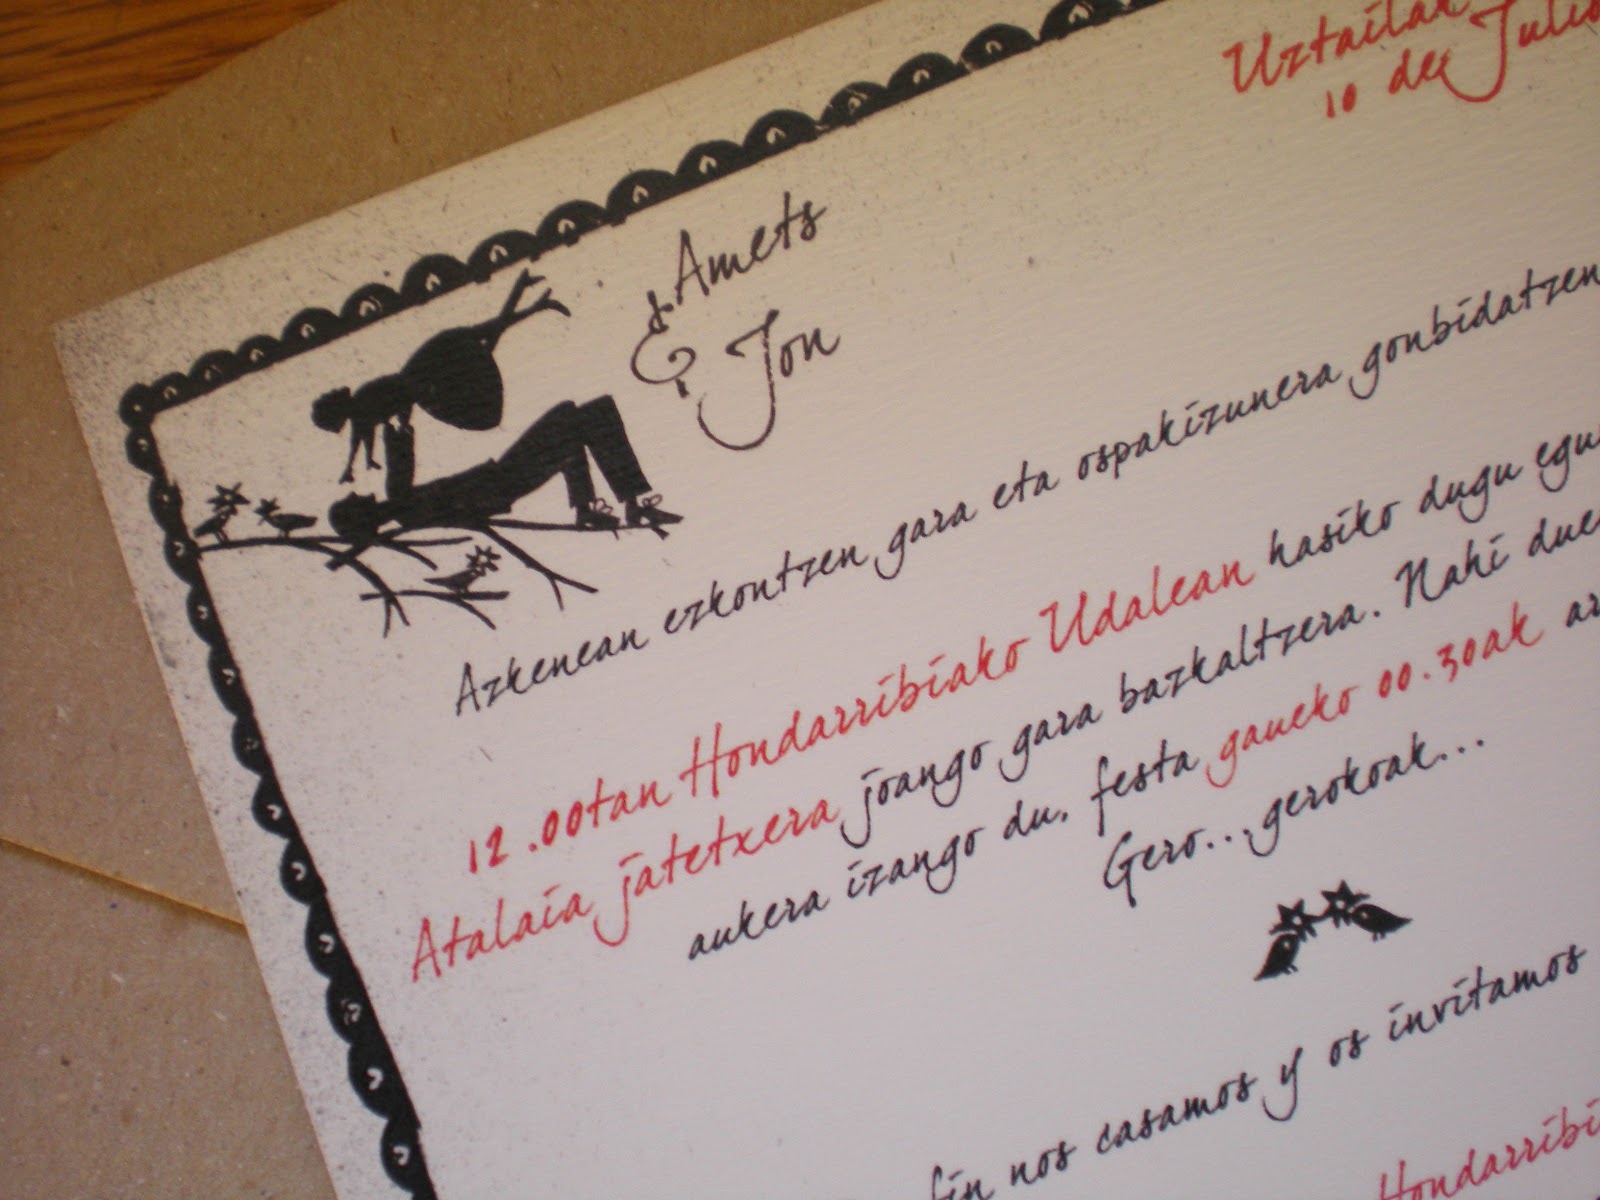 Uztailak
10 de Julio
Amets
& Jon
Azkenean ezkontzen gara eta ospakizunera gonbidatzen
12.00tan Hondarribiako Udalean hasiko dugu
Atalaia jatetxera joango gara bazkaltzera. Nahi
aukera izango du. festa gaueko 00.30ak
Gero... gerokoak...
fin nos casamos y os invitamos